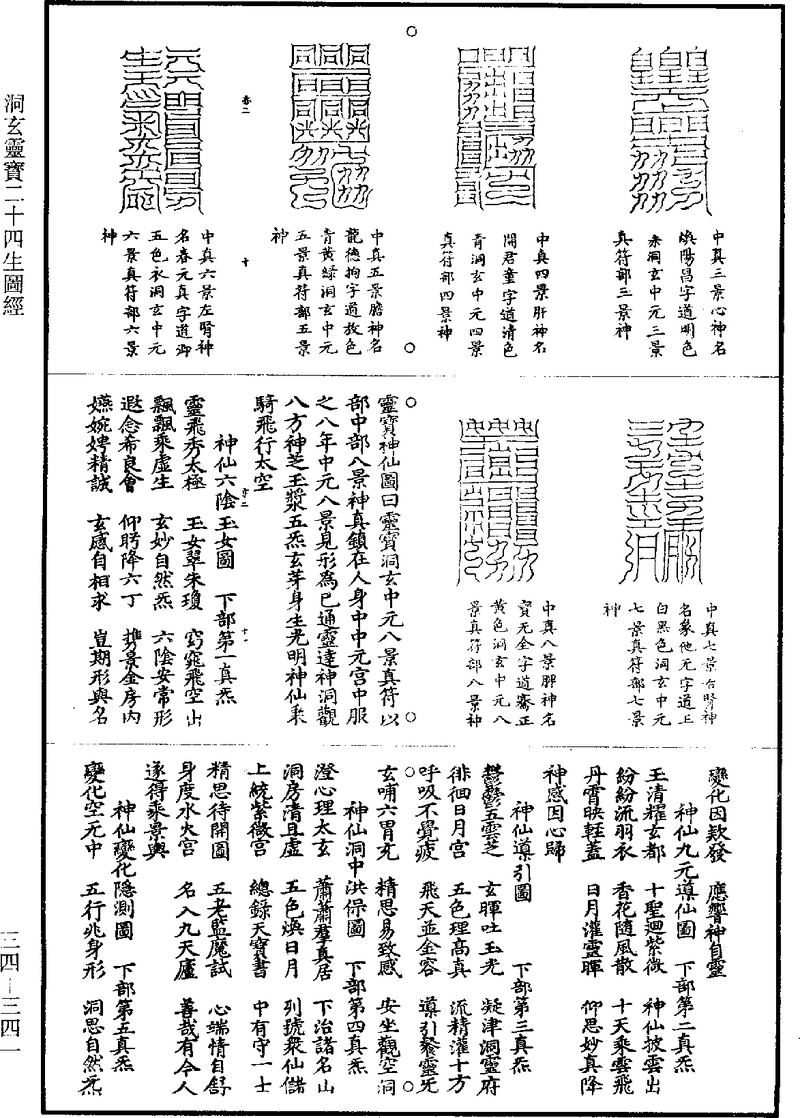 洞玄靈寶二十四生圖經
三四—三四一
中真三景心神名
煥陽昌字道明色
赤洞玄中元三景
真符部三景神
中真四景肝神名
開君童字道清色
青洞玄中元四景
真符部四景神
中真五景膽神名
龍德拘字道放色
青黃綠洞玄中元
五景真符部五景
神
卷二
十
中真六景左腎神
名春元真字道卿
五色衣洞玄中元
六景真符部六景
神
中真七景右腎神
名象他无字道王
白黑色洞玄中元
七景真符部七景
神
中真八景脾神名
寶无全字道騫正
黃色洞玄中元八
景真符部八景神
靈寶神仙圖曰靈寶洞玄中元八景真符以
部中部八景神真鎮在人身中中元宮中服
之八年中元八景見形為已通靈達神洞觀
八方神芝玉漿五炁玄芽身生光明神仙乘
騎飛行太空
神仙六陰玉女圖　下部第一真炁
十一
靈飛秀太極　玉女翠朱瓊　窈窕飛空出
飄飄乘虛生　玄妙自然炁　六陰安常形
遐念希良會　仰眄降六丁　攜景金房內
嬿婉娉精誠　玄感自相求　豈期形與名
變化因欻發　應響神自靈
神仙九元導仙圖　下部第二真炁
玉清耀玄都　十聖迴紫微　神仙披雲出
紛紛流羽衣　香花隨風散　十天乘雲飛
丹霄映輕蓋　日月濯靈暉　仰思妙真降
神感因心歸
神仙導引圖　下部第三真炁
鬱鬱五雲芝　玄暉吐玉光　凝津洞靈府
徘徊日月宮　五色理高真　流精灌十方
呼吸不覺疲　飛天並金容　導引餐靈炁
玄哺六胃充　精思易致感　安坐觀空洞
神仙洞中洪保圖　下部第四真炁
澄心理太玄　蕭蕭羣真居　下治諸名山
洞房清且虛　五色煥日月　列號眾仙儲
上統紫微宮　總錄天寶書　中有守一士
精思待開圖　五老監魔試　心端情自舒
身度水火宮　名入九天廬　善哉有今人
遂得乘景輿
神仙變化隱測圖　下部第五真炁
變化空无中　五行兆身形　洞思自然炁